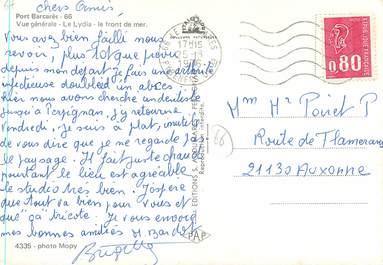 Chers Amis,
Port Barcarès - 66
Vue générale - Le Lydia - le front de mer.
Vous avez bien failli nous
revoir, plus tôt que prévu
depuis mon départ je fais une
infectieuse doublée d'un abcès
hier nous avons cherché un dentiste
jusqu'à Perpignan, j'y retourne
vendredi. Je suis à plat, inutile
de vous dire que je ne regarde pas
le paysage. Il fait juste chaud
pourtant le lieu est agréable
le studio très bien. J'espère
que tout va bien pour vous et
que "ça" tricote. Je vous envoie
mes bonnes amitiés M Bardet
Brigitte
4335 - photo Mopy
17H15
REPUBLIQUE FRANÇAISE
0,80
POSTES
Mm Mr Poiret P
Route de Flammerans
21130 AUXONNE
66
EDITIONS S.
Reproduction interdite
PAP